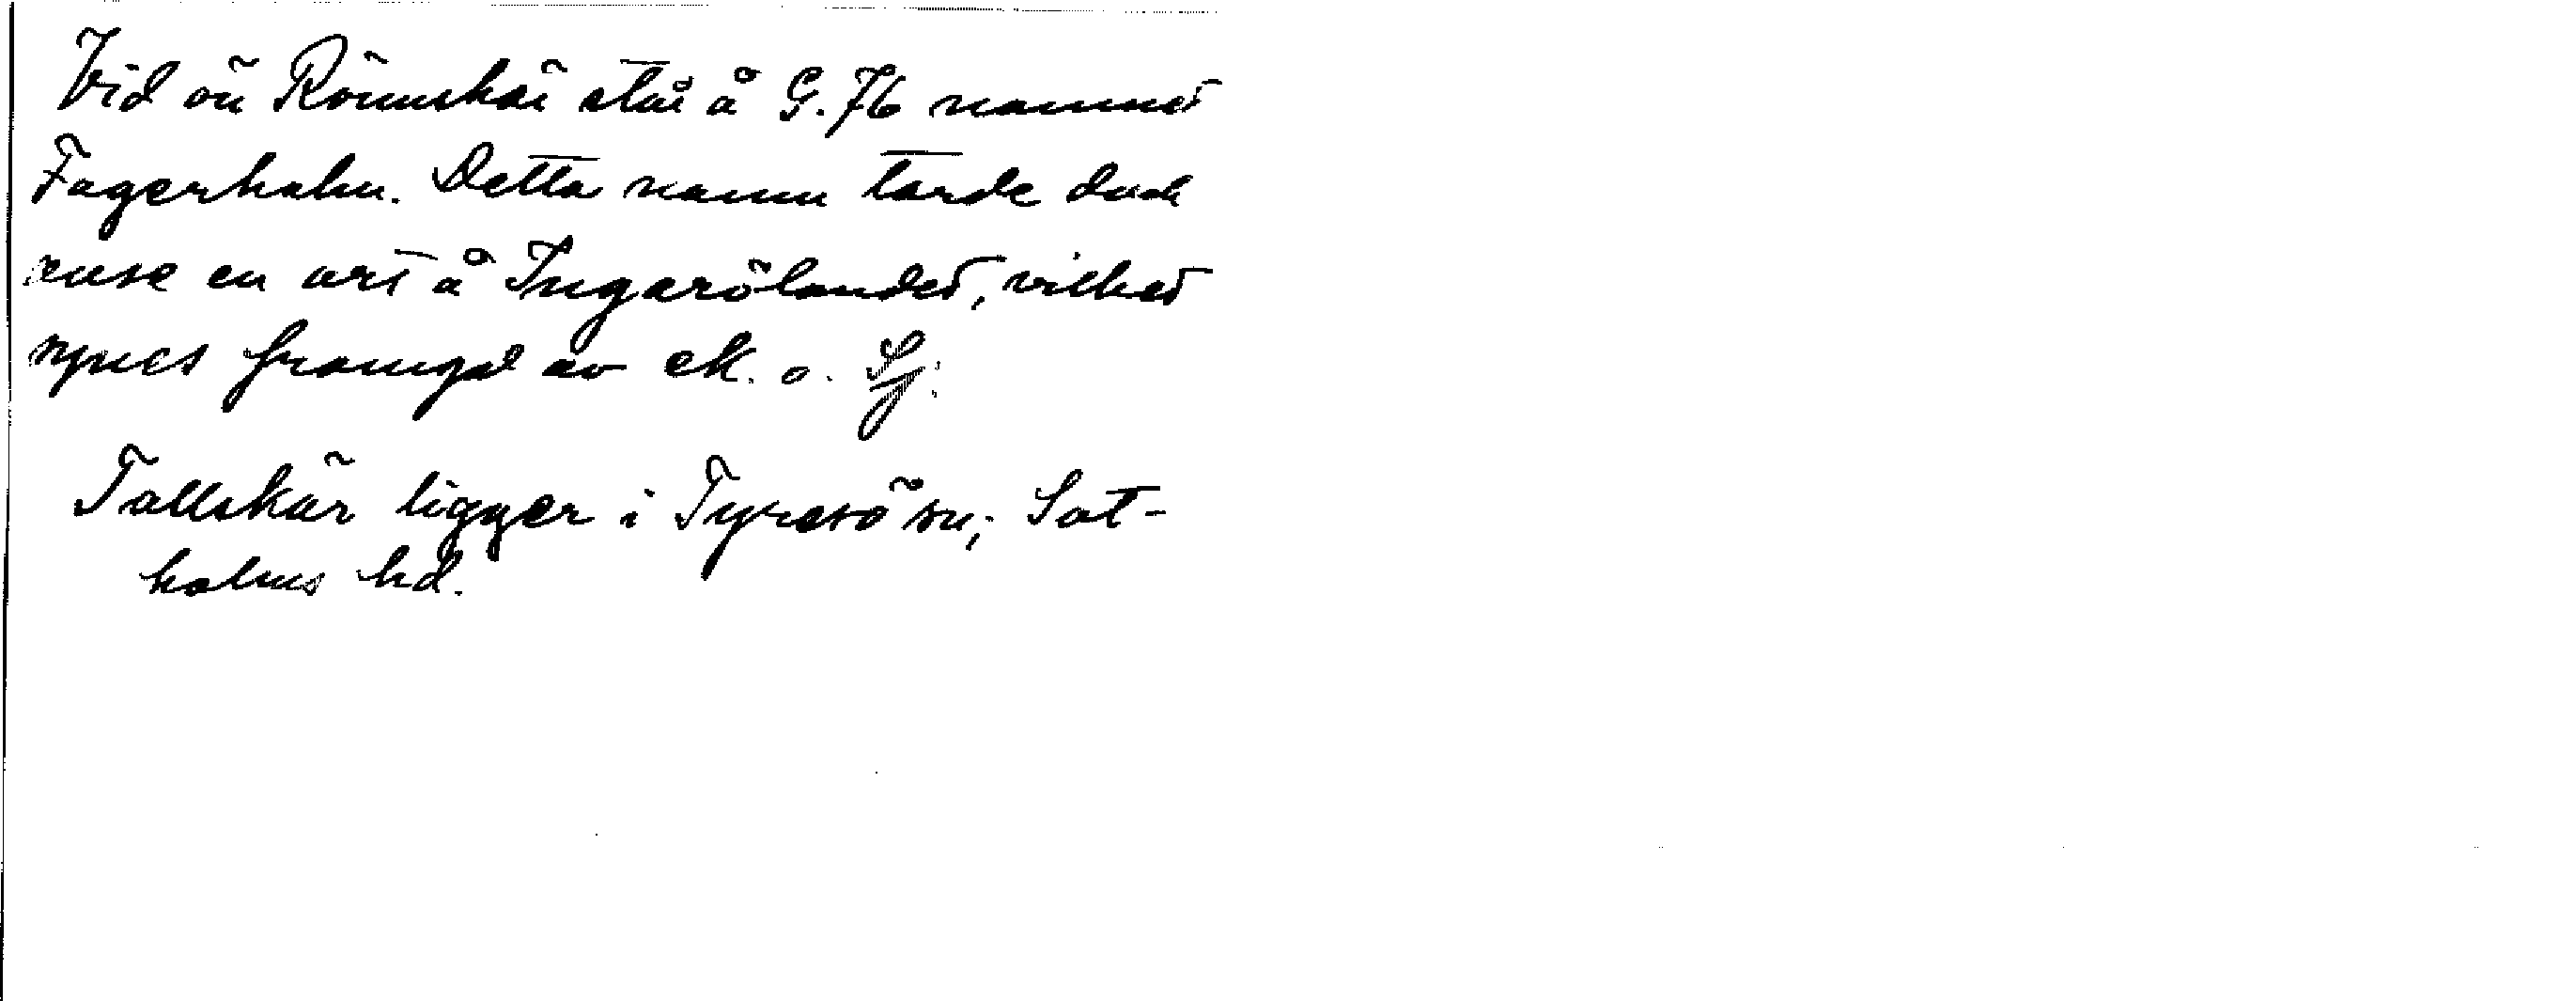 Vid ön Rönnskär står å G. 76 namnet
Fagerholm. Detta namn torde dock
avse en ort å Ingarölandet, vilket
synes framgå av ek. o. Sj.
Tallskär ligger i Tyresö sn, Sot-
holms hd.